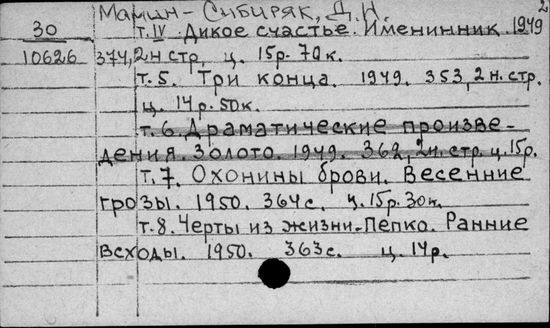 Мамин-Сибиряк, Д.Н. 2
30 т.IV Дикое счастье. Именинник. 1949
10626 374,2н стр, ц. 15р. 70к.
т.5. Три конца. 1949. 353,2н.стр.
ц. 14р.50к.
т.6.Драматические произве-
дения. Золото. 1949. 362,2н.стр.ц.15р.
т.7. Охонины брови. Весенние
грозы. 1950. 364с. ц.15р.30к.
т.8.Черты из жизни Пепко. Ранние
всходы. 1950. 363с. ц.14р.